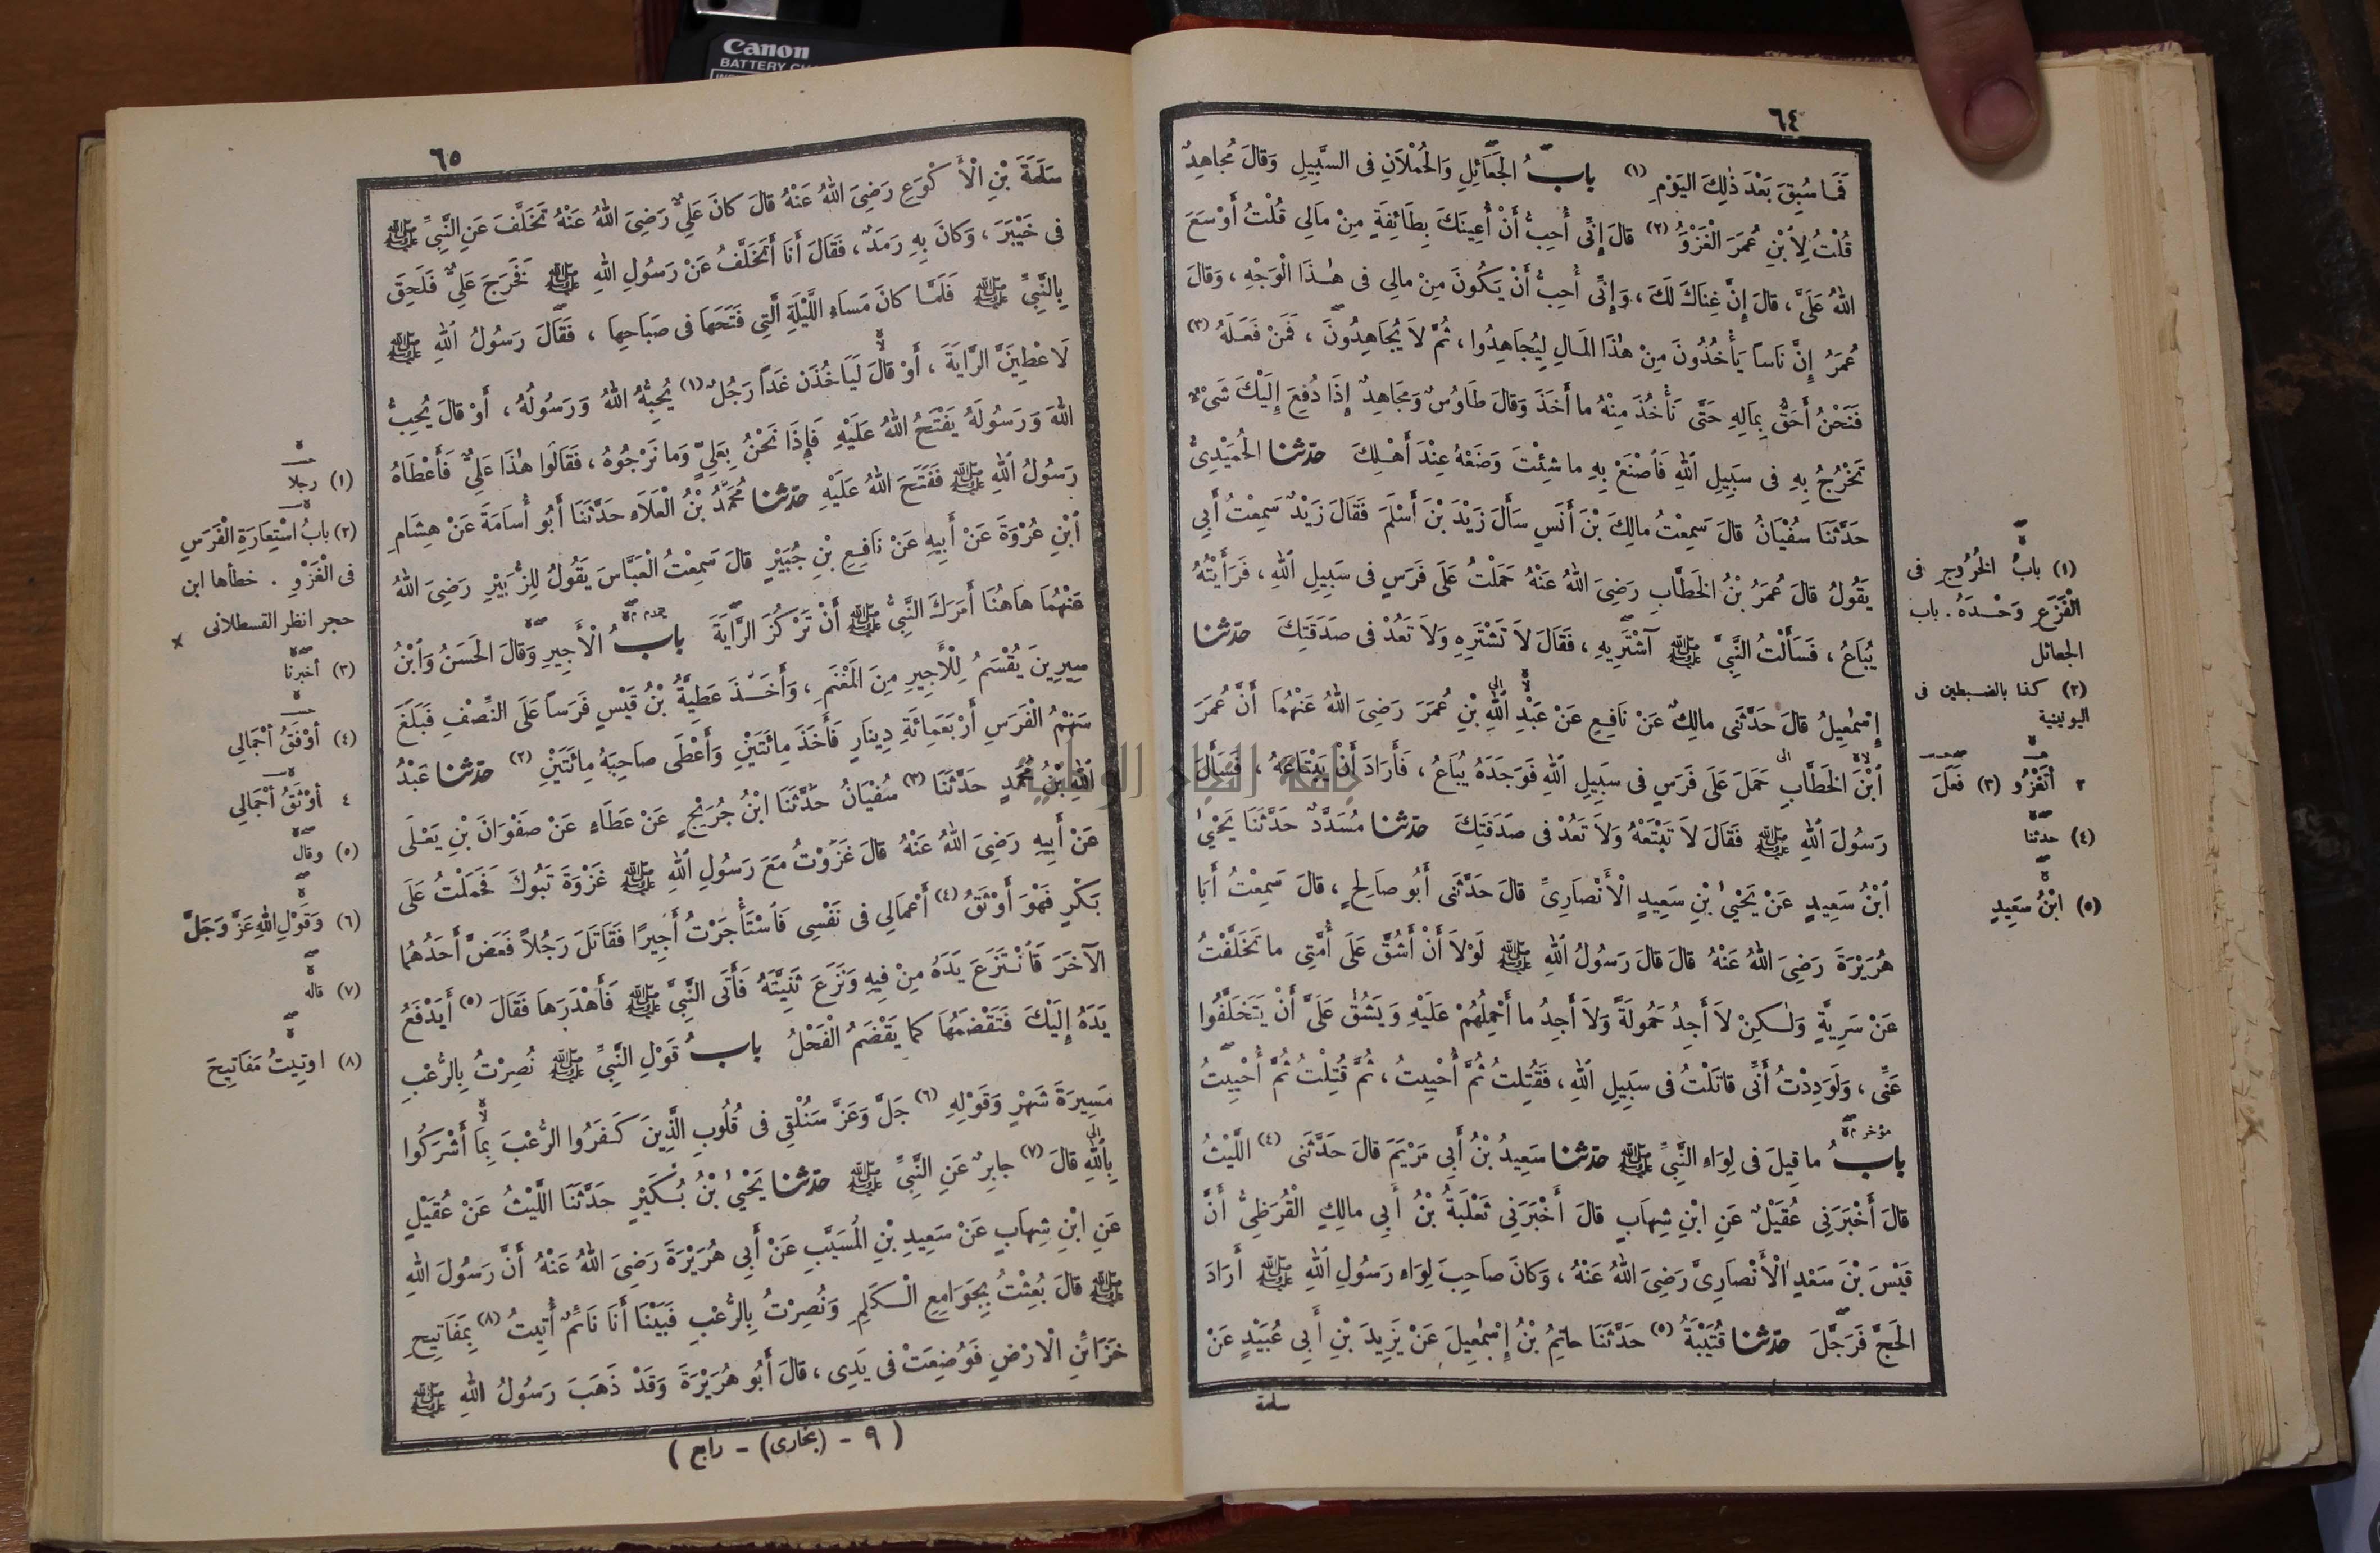 Canon
BATTERY CH
٦٤
فَمَا سُبِقَ بَعْدَ ذٰلِكَ اليَوْمِ (١) بابُ الجَعَائِلِ وَالْحُمْلَانِ فى السَّبِيلِ وَقالَ مُجاهِدٌ
قُلْتُ لِأَبْنِ عُمَرَ الْغَزْوَُ (٢) قالَ إِنِّى أُحِبُّ أَنْ أُعِينَكَ بِطَائِفَةٍ مِنْ مَالِى قُلْتُ أَوْسَعَ
اللهُ عَلَىَّ ، قالَ إِنَّ غِنَاكَ لَكَ ، وَإِنِّى أُحِبُّ أَنْ يَكُونَ مِنْ مالِى فى هٰذَا الْوَجْهِ ، وَقالَ
عُمَرُ إِنَّ نَاساً يَأْخُذُونَ مِنْ هٰذَا المَالِ لِيُجَاهِدُوا ، ثُمَّ لاَ يُجَاهِدُونَ ، فَمَنْ فَعَلَهُ (٣)
فَنَحْنُ أَحَقُّ بِمَالِهِ حَتَّى نَأْخُذَ مِنْهُ ما أَخَذَ وَقالَ طَاوُسٌ وَمُجَاهِدٌ إِذَا دُفِعَ إِلَيْكَ شَىْءٌ
تَخْرُجُ بِهِ فى سَبِيلِ اللهِ فَأَصْنَعْ بِهِ ما شِئْتَ وَضَعْهُ عِنْدَ أَهْلِكَ حدّثنا الحُمَيْدِىُّ
حَدَّثَنَا سُفْيَانُ قالَ سَمِعْتُ مالِكَ بْنَ أَنَسٍ سَأَلَ زَيْدَ بْنَ أَسْلَمَ فَقَالَ زَيْدٌ سَمِعْتُ أَبِى
يَقُولُ قالَ عُمَرُ بْنُ الخَطَّابِ رَضِىَ اللهُ عَنْهُ حَمَلْتُ عَلَى فَرَسٍ فى سَبِيلِ اللهِ ، فَرَأَيْتُهُ
يُبَاعُ ، فَسَأَلْتُ النَّبِىَّ ﷺ آشْتَرِيهِ ، فَقَالَ لاَ تَشْتَرِهِ وَلاَ تَعُدْ فى صَدَقَتِكَ حدّثنا
إِسْمٰعِيلُ قالَ حَدَّثَنى مالِكٌ عَنْ نَافِعٍ عَنْ عَبْدِ اللهِ بْنِ عُمَرَ رَضِىَ اللهُ عَنْهُمَا أَنَّ عُمَرَ
ابْنَ الخَطَّابِ حَمَلَ عَلَى فَرَسٍ فى سَبِيلِ اللهِ فَوَجَدَهُ يُبَاعُ ، فَأَرَادَ أَنْ يَبْتَاعَهُ ، فَسَأَلَ
رَسُولَ اللهِ ﷺ فَقَالَ لاَ تَبْتَعْهُ وَلاَ تَعُدْ فى صَدَقَتِكَ حدّثنا مُسَدَّدٌ حَدَّثَنَا يَحْيىٰ
ابْنُ سَعِيدٍ عَنْ يَحْيىٰ بْنِ سَعِيدٍ الْأَنْصَارِىِّ قالَ حَدَّثَنى أَبُو صَالِحٍ ، قالَ سَمِعْتُ أَبَا
هُرَيْرَةَ رَضِىَ اللهُ عَنْهُ قالَ قالَ رَسُولُ اللهِ ﷺ لَوْلاَ أَنْ أَشُقَّ عَلَى أُمَّتِى ما تَخَلَّفْتُ
عَنْ سَرِيةٍ وَلٰكِنْ لاَ أَجِدُ حَمُولَةً وَلاَ أَجِدُ ما أَحْمِلُهُمْ عَلَيْهِ وَيَشُقُّ عَلَىَّ أَنْ يَتَخَلَّفُوا
عَنِّى ، وَلَوَدِدْتُ أَنِّى قاتَلْتُ فى سَبِيلِ اللهِ ، فَقُتِلْتُ ثُمَّ أُحْيِيتُ ، ثُمَّ قُتِلْتُ ثُمَّ أُحْيِيتُ
بابُ ما قِيلَ فى لِوَاءِ النَّبِىِّ ﷺ حدّثنا سَعِيدُ بْنُ أَبِى مَرْيَمَ قالَ حَدَّثَنى (٤) اللَّيْثُ
قالَ أَخْبَرَنِى عُقَيْلٌ عَنِ ابْنِ شِهَابٍ قالَ أَخْبَرَنِى ثَعْلَبَةُ بْنُ أَبِى مالِكٍ الْقُرَظِىُّ أَنَّ
قَيْسَ بْنَ سَعْدٍ الْأَنْصَارِىَّ رَضِىَ اللهُ عَنْهُ ، وَكانَ صَاحِبَ لِوَاءِ رَسُولِ اللهِ ﷺ أَرَادَ
الحَجَّ فَرَجَّلَ حدّثنا قُتَيْبَةُ (٥) حَدَّثَنَا حاتِمُ بْنُ إِسْمٰعِيلَ عَنْ يَزِيدَ بْنِ أَبِى عُبَيْدٍ عَنْ
سلمة
(١) بابُ الخُرُوجِ فى
الْفَزَعِ وَحْدَهُ . باب
الجعائل
(٢) كذا بالضبطين فى
اليونينية
٢ أتَغْزُو (٣) فَعَلَ
(٤) حدثنا
(٥) ابْنُ سَعِيدٍ
٦٥
سَلَمَةَ بْنِ الْأَكْوَعِ رَضِىَ اللهُ عَنْهُ قالَ كانَ عَلِىٌّ رَضِىَ اللهُ عَنْهُ تَخَلَّفَ عَنِ النَّبِىِّ ﷺ
فى خَيْبَرَ ، وَكانَ بِهِ رَمَدٌ ، فَقَالَ أَنَا أَتَخَلَّفُ عَنْ رَسُولِ اللهِ ﷺ فَخَرَجَ عَلِىٌّ فَلَحِقَ
بِالنَّبِىِّ ﷺ فَلَمَّا كانَ مَسَاءِ اللَّيْلَةِ الَّتِى فَتَحَهَا فى صَبَاحِهَا ، فَقَالَ رَسُولُ اللهِ ﷺ
لَأُعْطِيَنَّ الرَّايَةَ ، أَوْ قالَ لَيَأْخُذَن غَداً رَجُلٌ (١) يُحِبُّهُ اللهُ وَرَسُولُهُ ، أَوْ قالَ يُحِبُّ
اللهَ وَرَسُولَهُ يَفْتَحُ اللهُ عَلَيْهِ فَإِذَا نَحْنُ بِعَلِىٍّ وَما نَرْجُوهُ ، فَقَالُوا هٰذَا عَلِىٌّ فَأَعْطَاهُ
رَسُولُ اللهِ ﷺ فَفَتَحَ اللهُ عَلَيْهِ حدّثنا مُحَمَّدُ بْنُ الْعَلَاءِ حَدَّثَنَا أَبُو أُسَامَةَ عَنْ هِشَامِ
ابْنِ عُرْوَةَ عَنْ أَبِيهِ عَنْ نَافِعِ بْنِ جُبَيْرٍ قالَ سَمِعْتُ الْعَبَّاسَ يَقُولُ لِلزُّبَيْرِ رَضِىَ اللهُ
عَنْهُمَا هَاهُنَا أَمَرَكَ النَّبِىُّ ﷺ أَنْ تَرْكُزَ الرَّايَةَ بابُ الْأَجِيرِ وَقالَ الحَسَنُ وَابْنُ
سِيرِينَ يُقْسَمُ لِلْأَجِيرِ مِنَ المَغْنَمِ ، وَأَخَذَ عَطِيَّةُ بْنُ قَيْسٍ فَرَساً عَلَى النِّصْفِ فَبَلَغَ
سَهْمُ الْفَرَسِ أَرْبَعَمِائَةِ دِينَارٍ فَأَخَذَ مِائَتَيْنِ وَأَعْطَى صَاحِبَهُ مِائَتَيْنِ (٢) حدّثنا عَبْدُ
اللهِ بْنُ مُحَمَّدٍ حَدَّثَنَا (٣) سُفْيَانُ حَدَّثَنَا ابْنُ جُرَيْجٍ عَنْ عَطَاءٍ عَنْ صَفْوَانَ بْنِ يَعْلَى
عَنْ أَبِيهِ رَضِىَ اللهُ عَنْهُ قالَ غَزَوْتُ مَعَ رَسُولِ اللهِ ﷺ غَزْوَةَ تَبُوكَ فَحَمَلْتُ عَلَى
بَكْرٍ فَهْوَ أَوْثَقُ (٤) أَعْمَالِى فى نَفْسِى فَاسْتَأْجَرْتُ أَجِيرًا فَقَاتَلَ رَجُلاً فَعَضَّ أَحَدُهُمَا
الآخَرَ فَانْتَزَعَ يَدَهُ مِنْ فِيهِ وَنَزَعَ ثَنِيَّتَهُ فَأَتَى النَّبِىَّ ﷺ فَأَهْدَرَهَا فَقَالَ (٥) أَيَدْفَعُ
يَدَهُ إِلَيْكَ فَتَقْضَمُهَا كما يَقْضَمُ الْفَحْلُ بابُ قَوْلِ النَّبِىِّ ﷺ نُصِرْتُ بِالرُّعْبِ
مَسِيرَةَ شَهْرٍ وَقَوْلِهِ (٦) جَلَّ وَعَزَّ سَنُلْقِى فى قُلُوبِ الَّذِينَ كَفَرُوا الرُّعْبَ بِمَا أَشْرَكُوا
بِاللهِ قالَ (٧) جابِرٌ عَنِ النَّبِىِّ ﷺ حدّثنا يَحْيىٰ بْنُ بُكَيْرٍ حَدَّثَنَا اللَّيْثُ عَنْ عُقَيْلٍ
عَنِ ابْنِ شِهَابٍ عَنْ سَعِيدِ بْنِ المُسَيَّبِ عَنْ أَبِى هُرَيْرَةَ رَضِىَ اللهُ عَنْهُ أَنَّ رَسُولَ اللهِ
ﷺ قالَ بُعِثْتُ بِجَوَامِعِ الْكَلِمِ وَنُصِرْتُ بِالرُّعْبِ فَبَيْنَا أَنَا نَائِمٌ أُتِيتُ (٨) بِمَفَاتِيحِ
خَزَائِنِ الْأَرْضِ فَوُضِعَتْ فى يَدِى ، قالَ أَبُو هُرَيْرَةَ وَقَدْ ذَهَبَ رَسُولُ اللهِ ﷺ
( ٩ - (بخارى) - رابع )
(١) رجلا
(٢) بابُ اسْتِعَارَةِ الْفَرَسِ
فى الْغَزْوِ . خطأها ابن
حجر انظر القسطلانى
(٣) أخبرنا
(٤) أوْفَقُ أحْمَالِى
٤ أوْثَقُ أحْمَالِى
(٥) وقال
(٦) وَقَوْلِ اللهِ عَزَّ وَجَلَّ
(٧) قاله
(٨) اوتِيتُ مَفَاتِيحَ
جامعة النجاح الوطنية